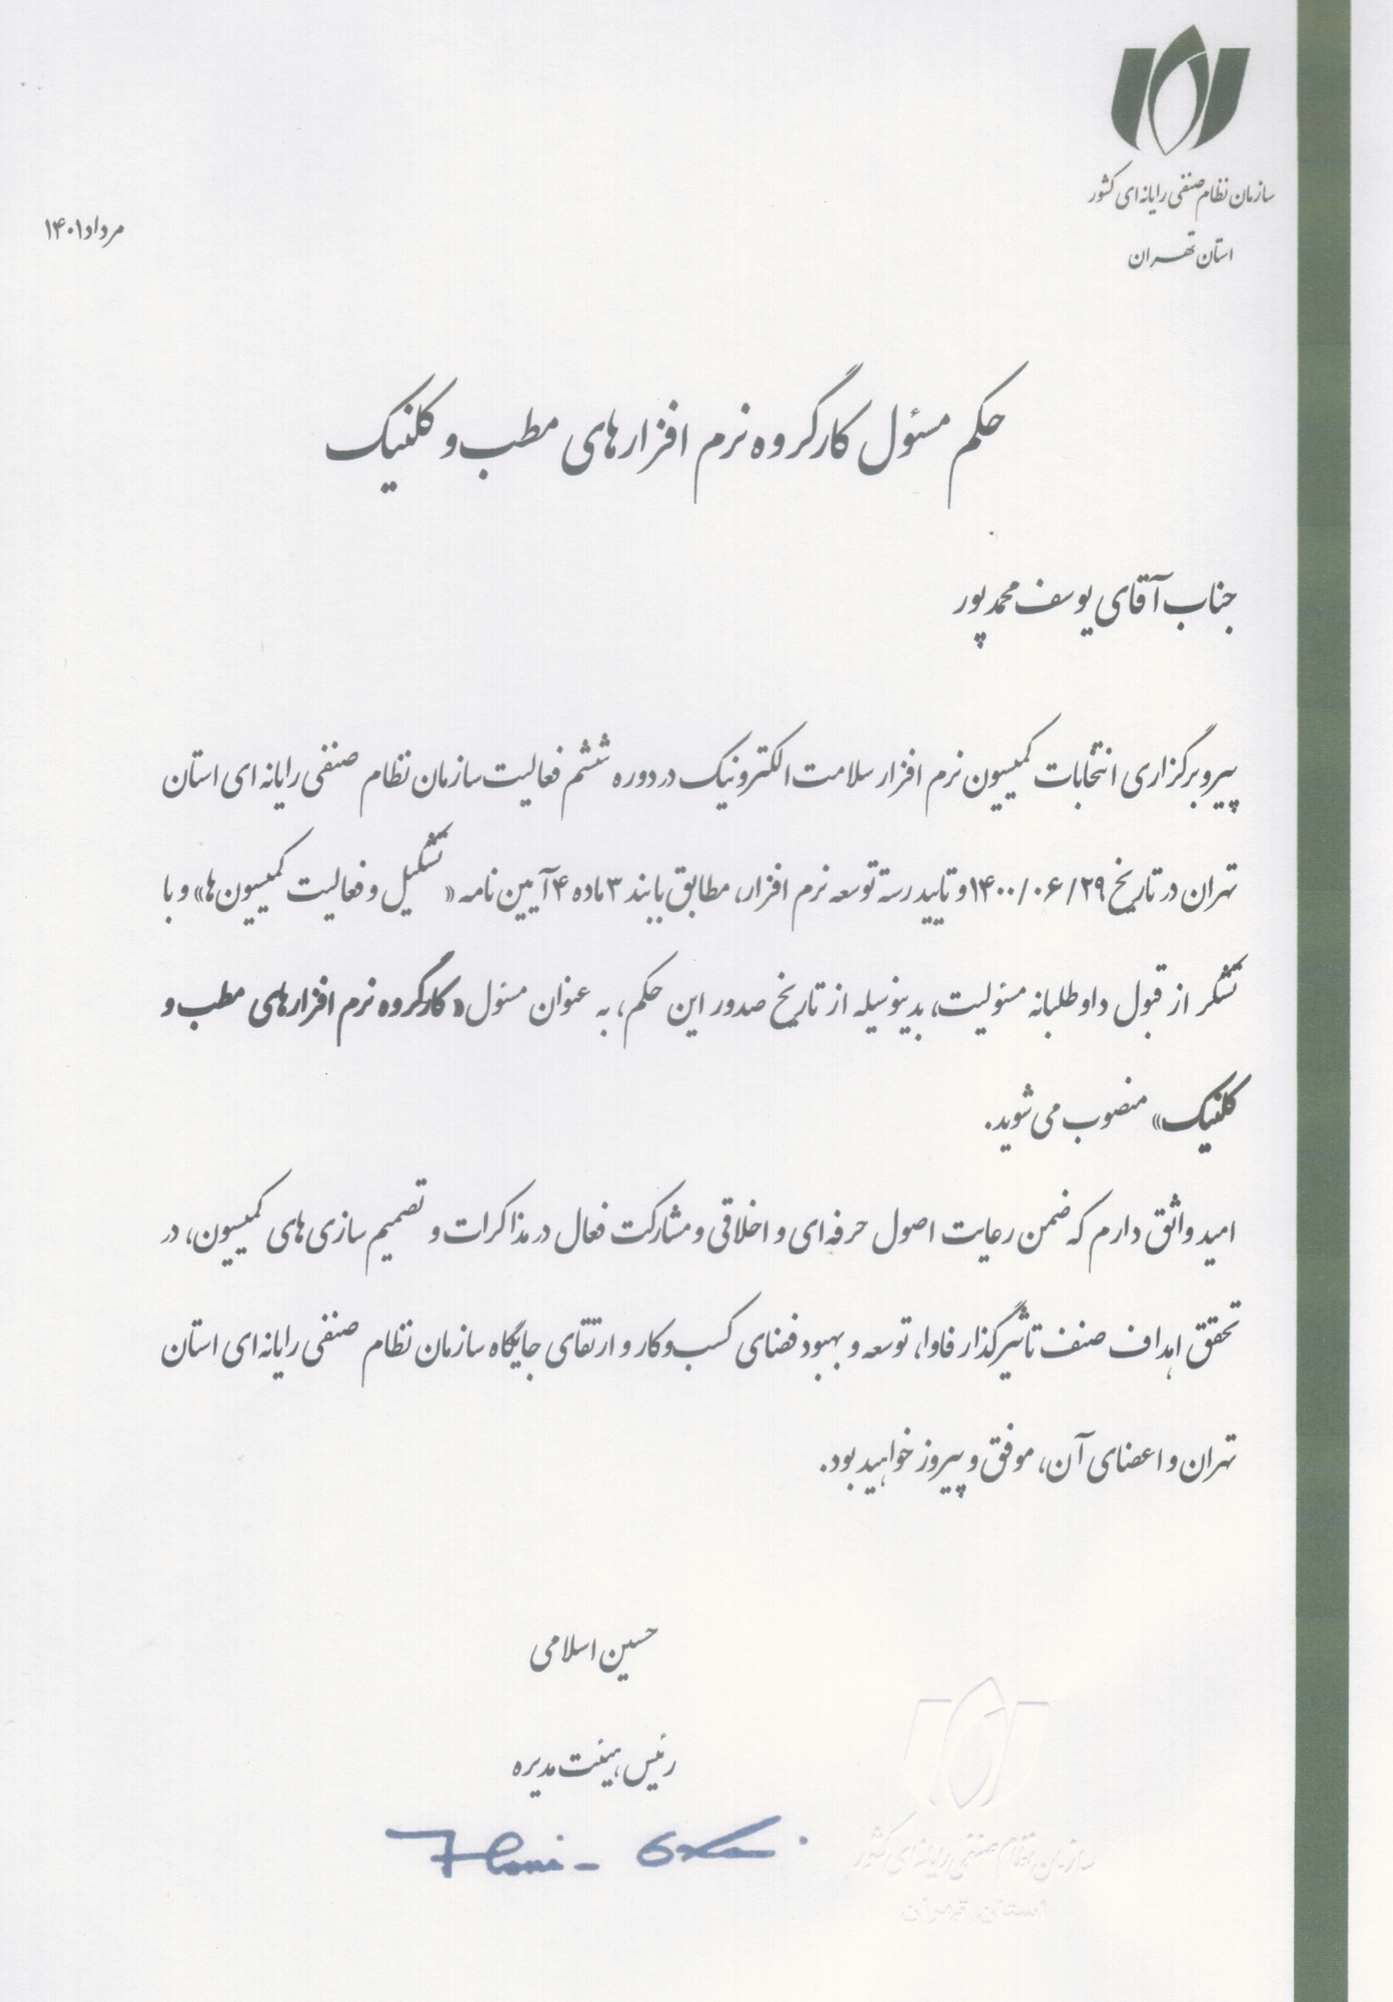 سازمان نظام صنفی رایانه ای کشور
استان تهران
مرداد۱۴۰۱
حکم مسئول کارگروه نرم افزارهای مطب و کلنیک
جناب آقای یوسف محمدپور
پیرو برگزاری انتخابات کمیسیون نرم افزار سلامت الکترونیک در دوره ششم فعالیت سازمان نظام صنفی رایانه ای استان
تهران در تاریخ ۱۴۰۰/۰۶/۲۹ و تایید رسته توسعه نرم افزار، مطابق با بند ۳ ماده ۴ آیین نامه « تشکیل و فعالیت کمیسیون ها» و با
تشکر از قبول داوطلبانه مسئولیت، بدینوسیله از تاریخ صدور این حکم، به عنوان مسئول « کارگروه نرم افزارهای مطب و
کلنیک» منصوب می شوید.
امید واثق دارم که ضمن رعایت اصول حرفه ای و اخلاقی و مشارکت فعال در مذاکرات و تصمیم سازی های کمیسیون، در
تحقق اهداف صنف تاثیرگذار فاوا، توسعه و بهبود فضای کسب و کار و ارتقای جایگاه سازمان نظام صنفی رایانه ای استان
تهران و اعضای آن، موفق و پیروز خواهید بود.
حسین اسلامی
رئیس هیئت مدیره
سازمان نظام صنفی رایانه ای کشور
استان تهران